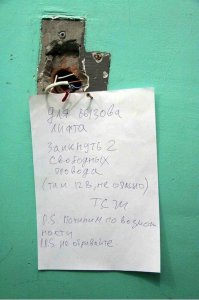 для вызова
лифта
замкнуть 2
свободных
провода
(там 12 В, не опасно)
ТСЖ
P.S. Починим по возмож
ности
P.P.S. не обрывайте